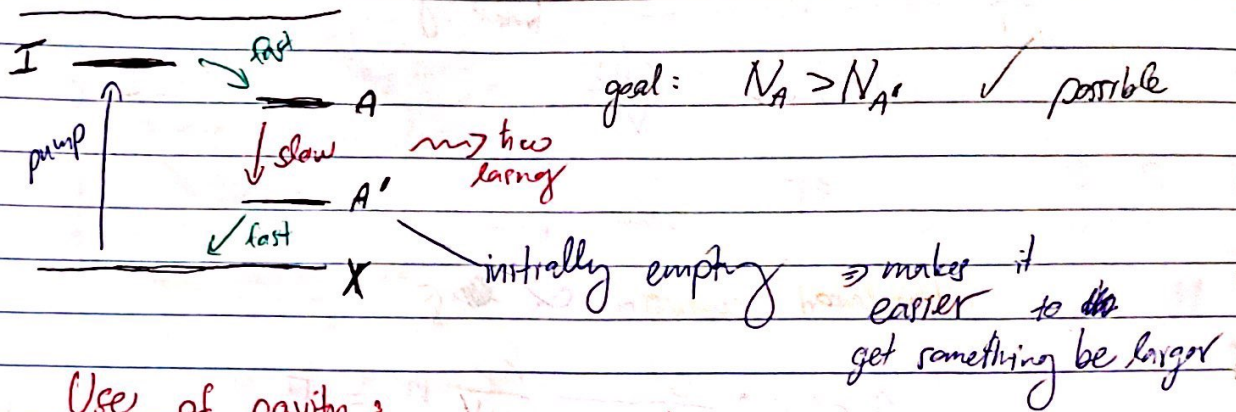 I fast
pump
A
goal: N_A > N_A' ✓ possible
slow ⇝ hν
lasing
A'
fast
X
initially empty ⇒ makes it
easier to
get something be larger
Use of cavity: